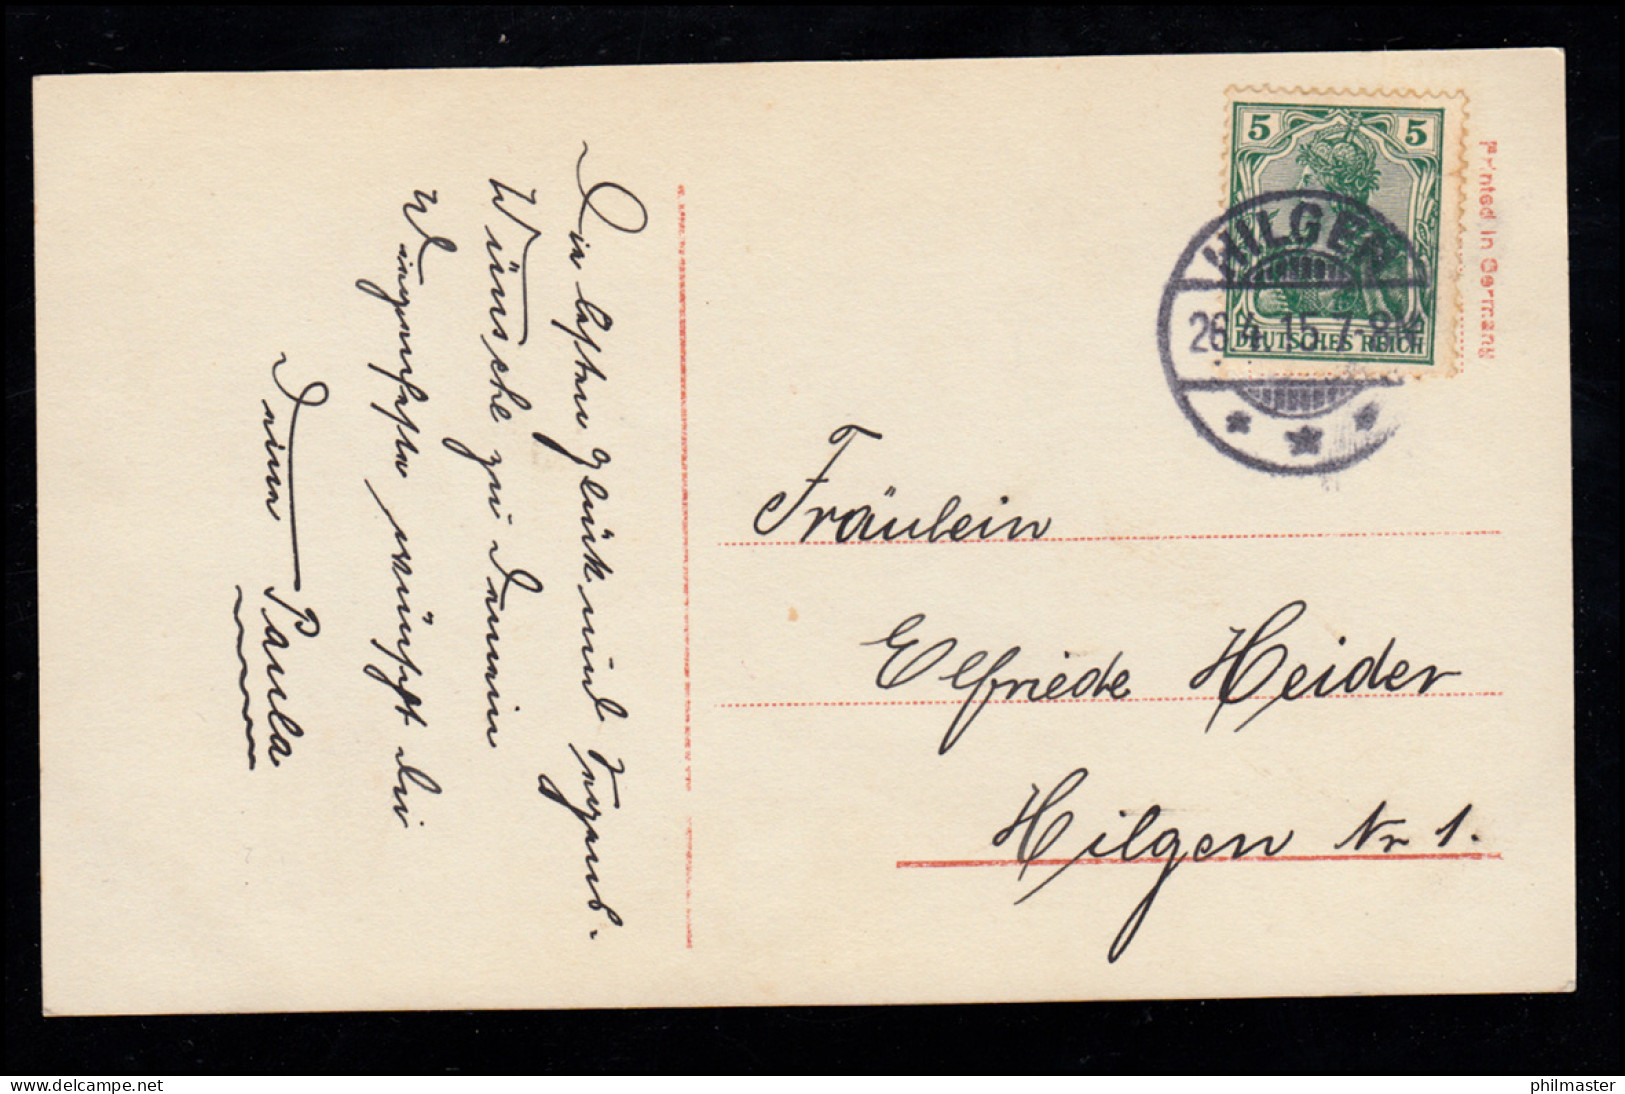 Die besten Glück und Segens-
Wünsche zu Deinem
Wiegenfeste wünscht Dir
Deine Paula
5 5
DEUTSCHES REICH
HILGEN
26.4.15.7-8N
Printed in Germany
Fräulein
Elfriede Heider
Hilgen Nr 1.
delcampe.net
philmaster